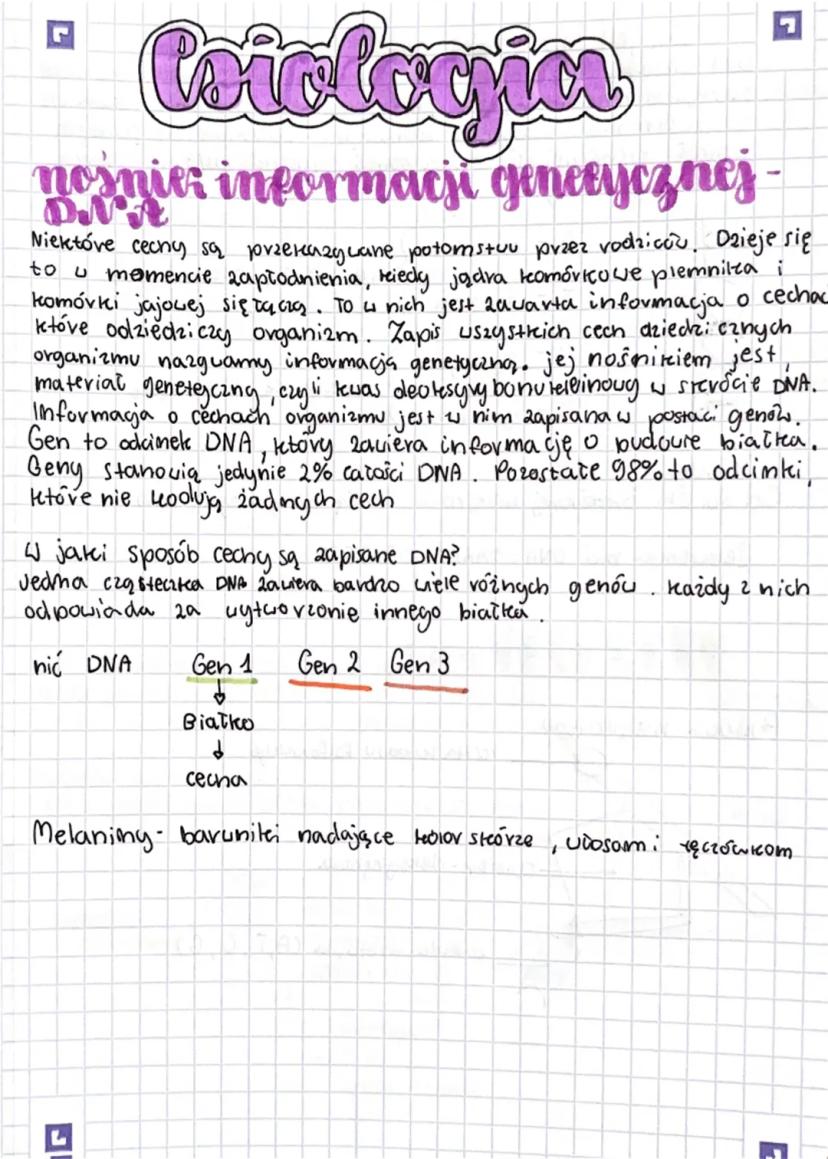 biologia
nośnik informacji genetycznej -
DNA
Niektóre cechy są przekazywane potomstwu przez rodziców. Dzieje się
to w momencie zapłodnienia, kiedy jądra komórkowe plemnika i
komórki jajowej się łączą. To w nich jest zawarta informacja o cechac
które odziedziczy organizm. Zapis wszystkich cech dziedzicznych
organizmu nazywamy informacją genetyczną. jej nośnikiem jest
materiał genetyczny, czyli kwas deoksyrybonukleinowy w skrócie DNA.
Informacja o cechach organizmu jest w nim zapisana w postaci genów.
Gen to odcinek DNA, który zawiera informację o budowie białka.
Geny stanowią jedynie 2% całości DNA. Pozostałe 98% to odcinki,
które nie kodują żadnych cech
W jaki sposób cechy są zapisane DNA?
Jedna cząsteczka DNA zawiera bardzo wiele różnych genów. każdy z nich
odpowiada za wytworzenie innego białka.
nić DNA Gen 1 Gen 2 Gen 3
↓
Białko
↓
cecha
Melaniny - barwniki nadające kolor skórze, włosom i tęczówkom